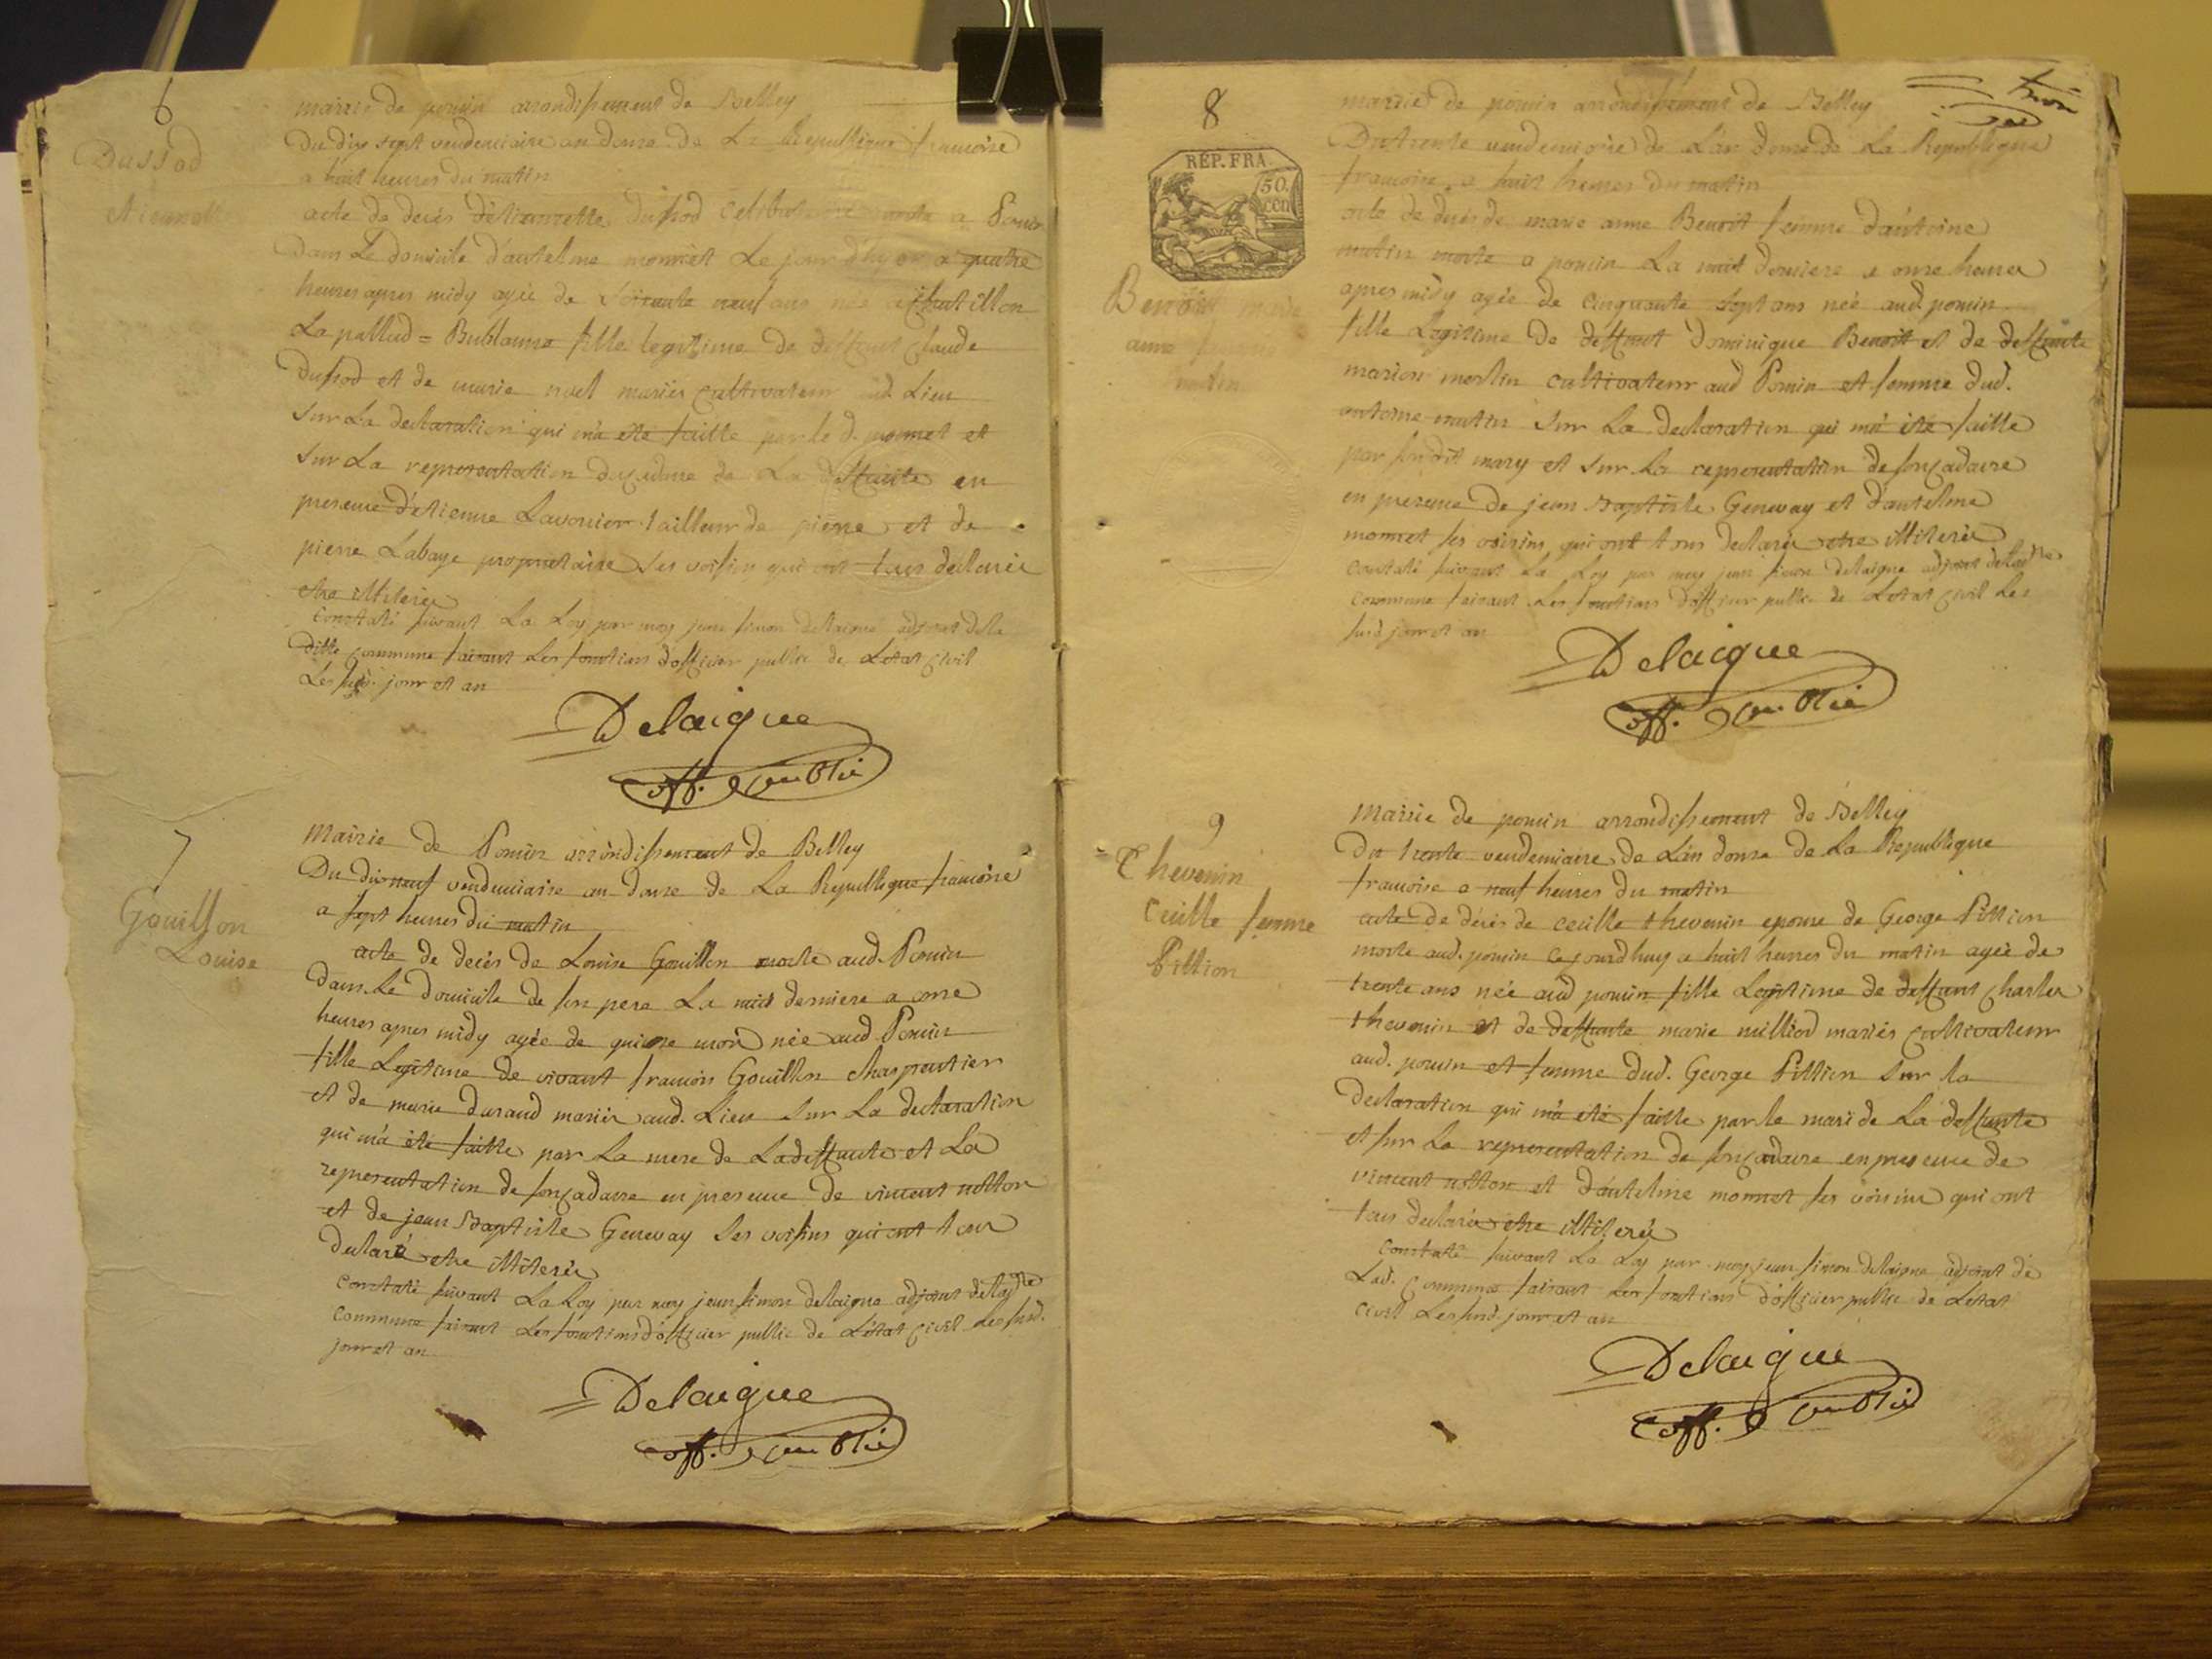 6
Dussod
etiennette
mairie de poncin arrondissement de Belley
Du dix sept vendemiaire an douze de La Republique francoise
a huit heures du matin
acte de decés d'etiennette dussod celibataire morte a Poncin
Dans Le domicile d'antelme monnet Le jour d'hyer a quatre
heures apres midy agée de soixante neuf ans née a Chatillon
La pallud = Bublanne fille legitime de deffunt Claude
Dussod et de marie noel mariés cultivateur aud Lieu
Sur La declaration qui m'a eté faitte par le d. monnet et
Sur La representation du cadavre de La deffunte en
presence d'etienne Lavonier tailleur de pierre et de
pierre Labaye proprietaire ses voisins qui ont tous declaré
etre illiteré
Constaté suivant La Loy par moy jean simon delaigue adjoint de la
ditte commune faisant Les fonctions d'officier public de Letat civil
Les susd. jour et an
Delaigue
off. public
7
Gouillon
Louise
Mairie de Poncin arrondissement de Belley
Du dix neuf vendemiaire an douze de La Republique francoise
a sept heures du matin
acte de decés de Louise Gouillon morte aud. Poncin
Dans Le domicile de son pere La nuit derniere a onze
heures apres midy agée de quinze mois née aud Poncin
fille Legitime de vivant francois Gouillon charpentier
et de marie durand mariés aud. Lieu Sur La declaration
qui m'a eté faitte par La mere de La deffunte et La
representation de son cadavre en presence de vincent notton
et de jean Baptiste Genevay Ses voisins qui ont tous
declaré etre illiteré
Constaté suivant La Loy par moy jean simon delaigue adjoint de la ditte
commune faisant Les fonctions d'officier public de L'etat civil Les susd.
jour et an
Delaigue
off. public
8
RÉP. FRA.
50. CEN
Benoit marie
anne femme
mutin
mairie de poncin arrondissement de Belley
Du trente vendemiaire de L'an douze de La Republique
francoise a huit heures du matin
acte de decés de marie anne Benoit femme d'antoine
mutin morte a poncin La nuit derniere a onze heures
apres midy agée de cinquante sept ans née aud. poncin
fille Legitime de deffunt dominique Benoit et de deffunte
marion merlin cultivateur aud Poncin et femme dud.
antoine mutin Sur La declaration qui m'a eté faitte
par son dit mary et Sur La representation de son cadavre
en presence de jean Baptiste Genevay et d'antelme
monnet ses voisins qui ont tous declaré etre illiteré
constaté suivant La Loy par moy jean simon delaigue adjoint de la ditte
commune faisant Les fonctions d'officier public de L'etat civil Les
susd jour et an
Delaigue
off. public
9
Thevenin
Cecille femme
Pittion
Mairie de poncin arrondissement de Belley
Du trente vendemiaire de L'an douze de La Republique
francoise a neuf heures du matin
acte de decés de cecille thevenin epouse de George Pittion
morte aud. poncin ce jourdhuy a huit heures du matin agée de
trente ans née aud poncin fille Legitime de deffunt Charles
thevenin et de deffunte marie milliod mariés cultivateur
aud. poncin et femme dud. George Pittion Sur la
declaration qui m'a eté faitte par le mari de La deffunte
et sur La representation de son cadavre en presence de
vincent notton et d'antelme monnet ses voisins qui ont
tous declaré etre illiteré
Constaté suivant La Loy par moy jean simon delaigue adjoint de
Lad. Commune faisant Les fonctions d'officier public de Létat
civil Les susd. jour et an
Delaigue
off. public